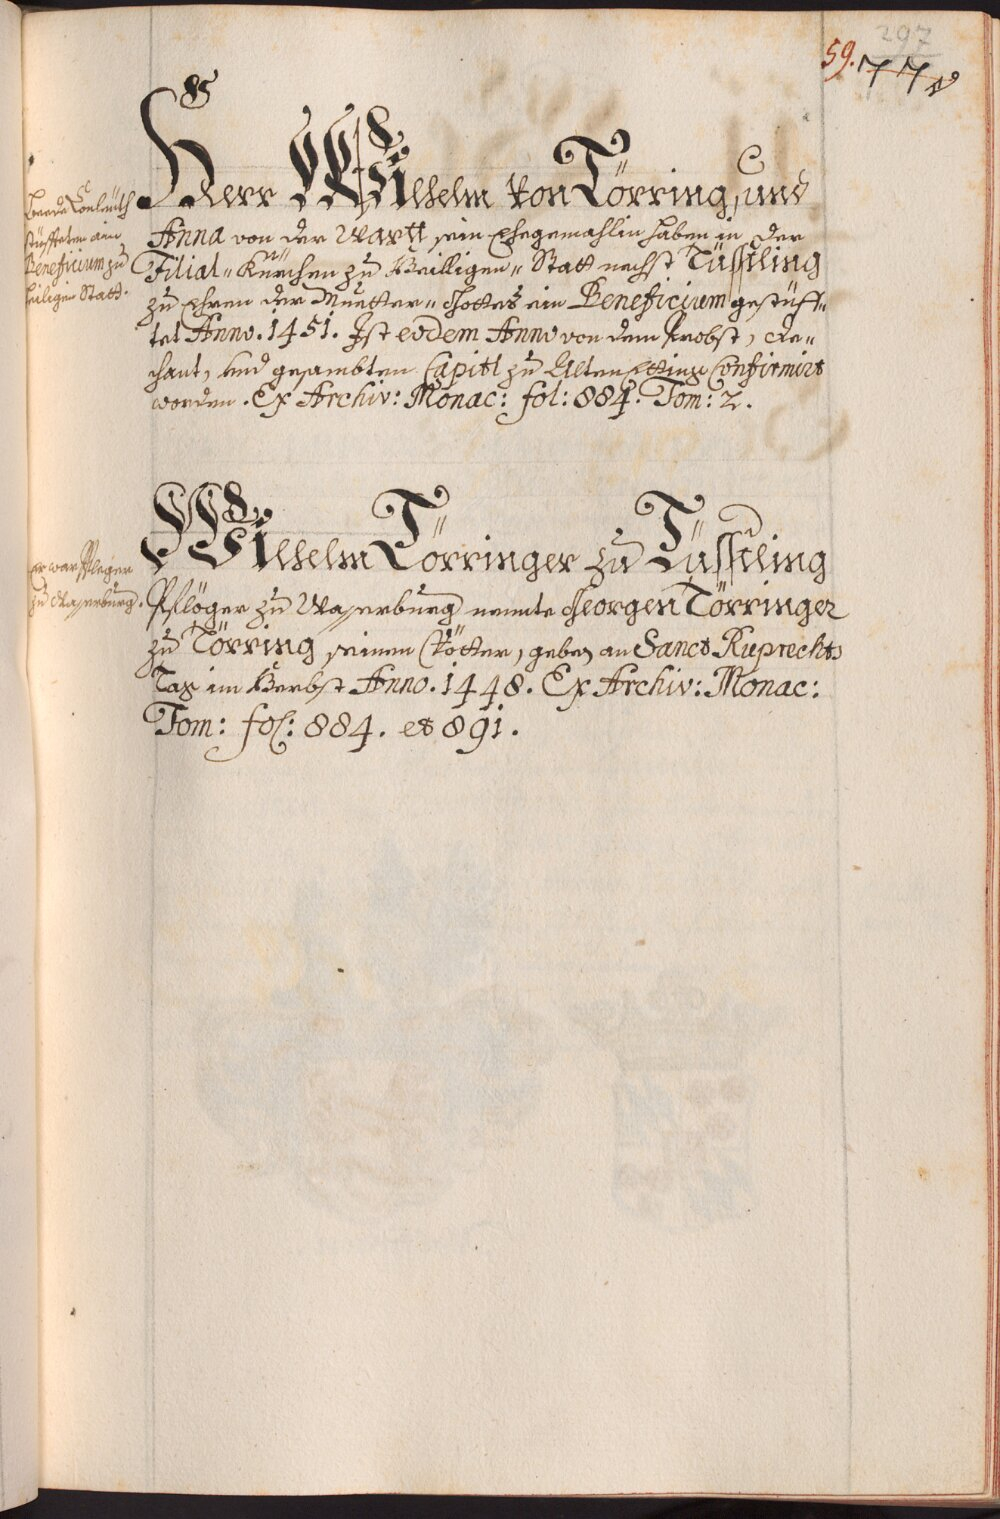 297
59.
77
Herr Wilhelm von Törring, und
Anna von der Wartt sein Ehegemahlin haben in der
Filial-Kürchen zu Heilligen-Statt nechst Tüssling
zu Ehren der Muetter-Gottes ein Beneficium gestüff-
tet Anno. 1451. Ist eodem Anno von dem Probst, De-
chant, und gesambten Capitl zu Alten Etting Confirmirt
worden. Ex Archiv: Monac: fol: 884. Tom: 2.
Beede Conleüth
stüffeten ein
Beneficium zu
heiligen Statt.
Wilhelm Törringer zu Tüssling
Pflöger zu Wasserburg nennte Georgen Törringer
zu Törring seinen Vötter, geben an Sanct Ruprechts
Tag im Herbst Anno. 1448. Ex Archiv: Monac:
Tom: fol: 884. et 891.
Er war Pfleger
zu Wasserburg.